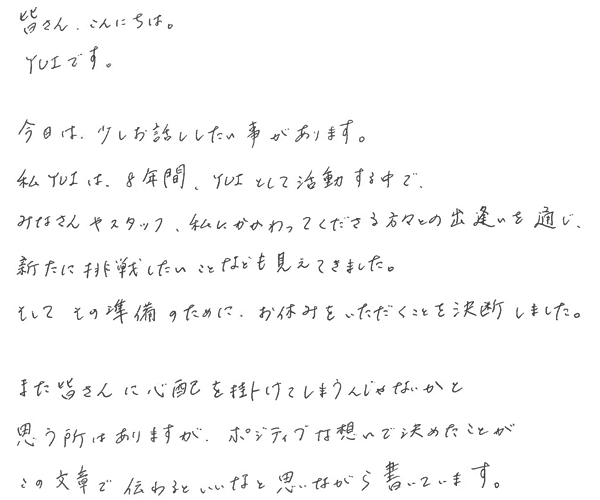 皆さん、こんにちは。
YUIです。
今日は、少しお話ししたい事があります。
私YUIは、8年間、YUIとして活動する中で、
みなさんやスタッフ、私にかかわってくださる方々との出逢いを通じ、
新たに挑戦したいことなども見えてきました。
そして その準備のために、お休みをいただくことを決断しました。
また皆さんに心配を掛けてしまうんじゃないかと
思う所はありますが、ポジティブな想いで決めたことが
この文章で伝わるといいなと思いながら書いています。